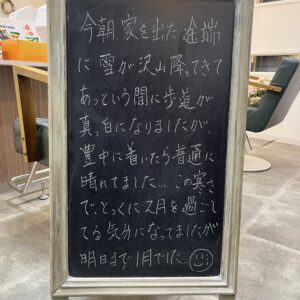 今朝、家を出た途端
に雪が沢山降ってきて
あっという間に歩道が
真っ白になりましたが、
豊中に着いたら普通に
晴れてました… この寒さ
で、とっくに2月を過ごし
てる気分になってましたが
明日まで1月でした…